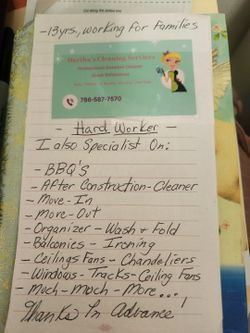 -13yrs, working for Families
Bertha's Cleaning Services
Great References
786-587-7570
- Hard Worker -
I also Specialist On:
- BBQ's
- After Construction-Cleaner
- Move-In
- More-Out
- Organizer - Wash & Fold
- Balconies - Ironing
- Ceilings Fans - Chandeliers
- Windows - Tracks - Ceiling Fans
- Much-Much-More...!
Thanks In Advance